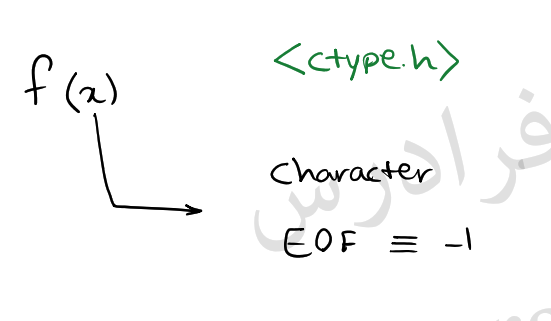 <ctype.h>
f(x)
character
EOF ≡ -1
فرادرس